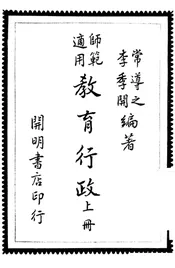 常導之
李季開 編著
師範
適用
教育行政 上冊
開明書店印行